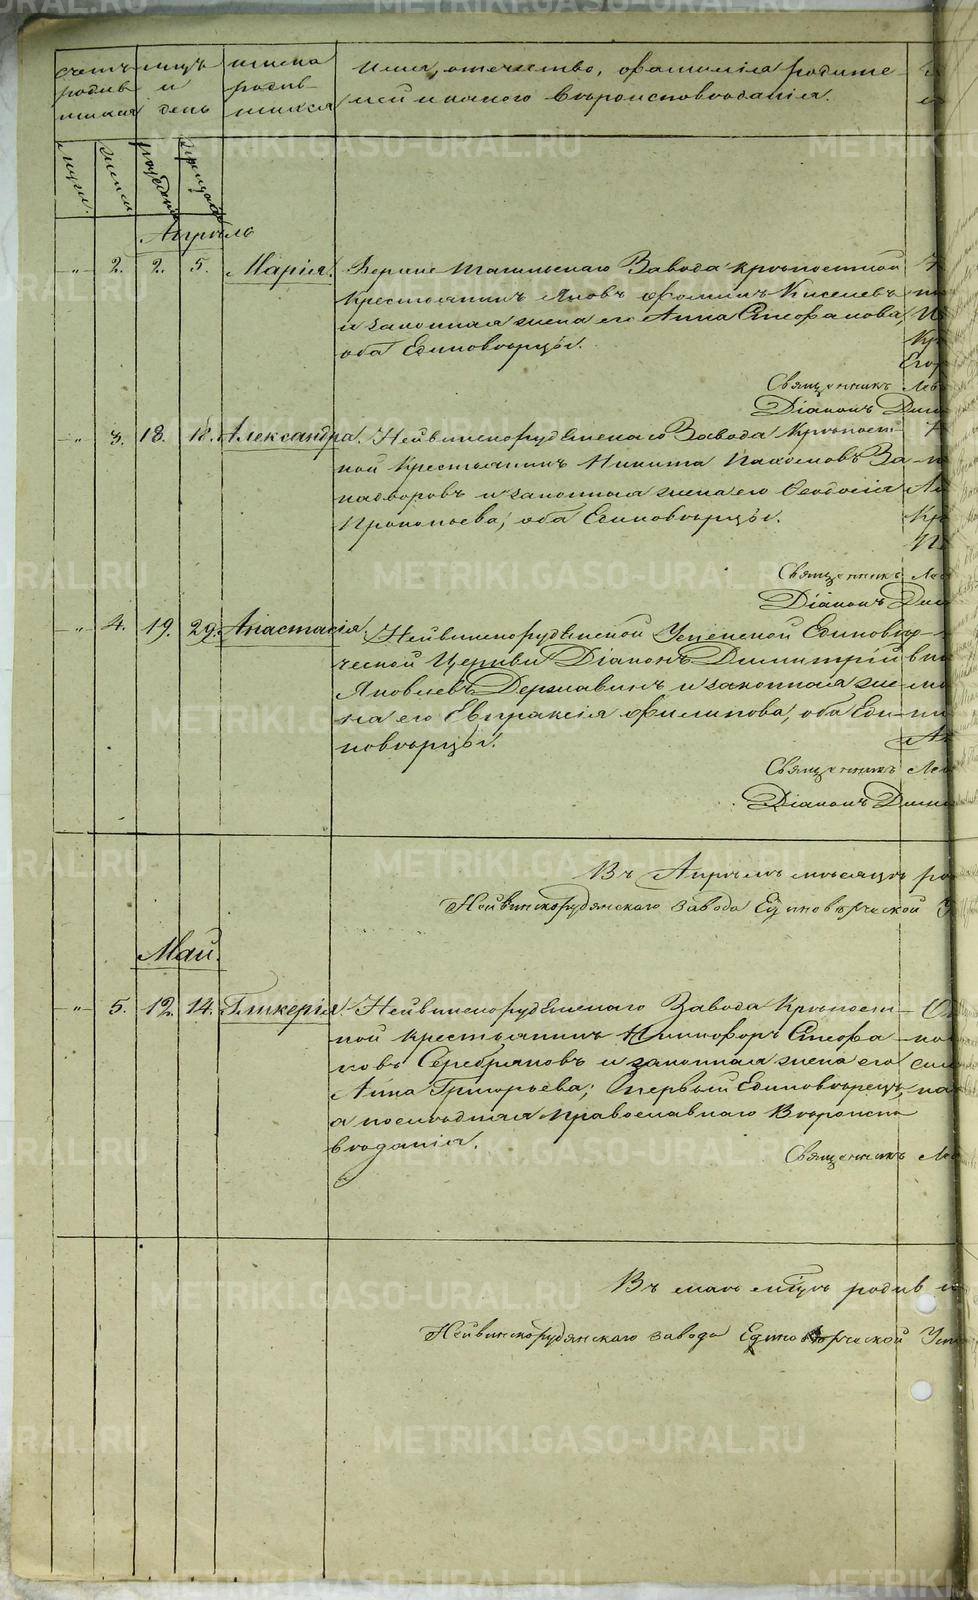 счетъ мцъ имена Имя, отчество, фамилія родите-
родив и родив- лей и какого Вѣроисповѣданія.
шихся день шихся
мужс. женск. рожденія крещенія
Апрѣль
" 2. 2. 5. Марія. Верхне Тагильскаго Завода крѣпостной
крестьянинъ Яковъ Фоминъ Киселевъ
и законная жена его Анна Стефанова,
оба Единовѣрцы.
Священникъ
Діаконъ
" 3. 18. 18. Александра. Нейвинскорудянскаго Завода Крѣпост-
ной Крестьянинъ Никита Пахомовъ За-
падворовъ и законная жена его Ѳеодосія
Прокопьева, оба Единовѣрцы.
Священникъ
Діаконъ
" 4. 19. 29. Анастасія. Нейвинскорудянской Успенской Единовѣр-
ческой Церкви Діаконъ Димитрій
Яковлевъ Державинъ и законная же-
на его Евпраксія Филипова, оба Еди-
новѣрцы.
Священникъ
Діаконъ
Въ Апрѣлѣ мѣсяцѣ
Нейвинскорудянскаго завода Единовѣрческой
Май.
" 5. 12. 14. Гликерія. Нейвинскорудянскаго Завода Крѣпост-
ной крестьянинъ Никифоръ Стефа-
новъ Серебряковъ и законная жена его
Анна Григорьева; первый Единовѣрецъ,
а послѣдняя Православнаго Вѣроиспо-
вѣданія.
Священникъ
Въ маѣ мцѣ родив
Нейвинскорудянскаго завода Единовѣрческой
METRIKI.GASO-URAL.RU